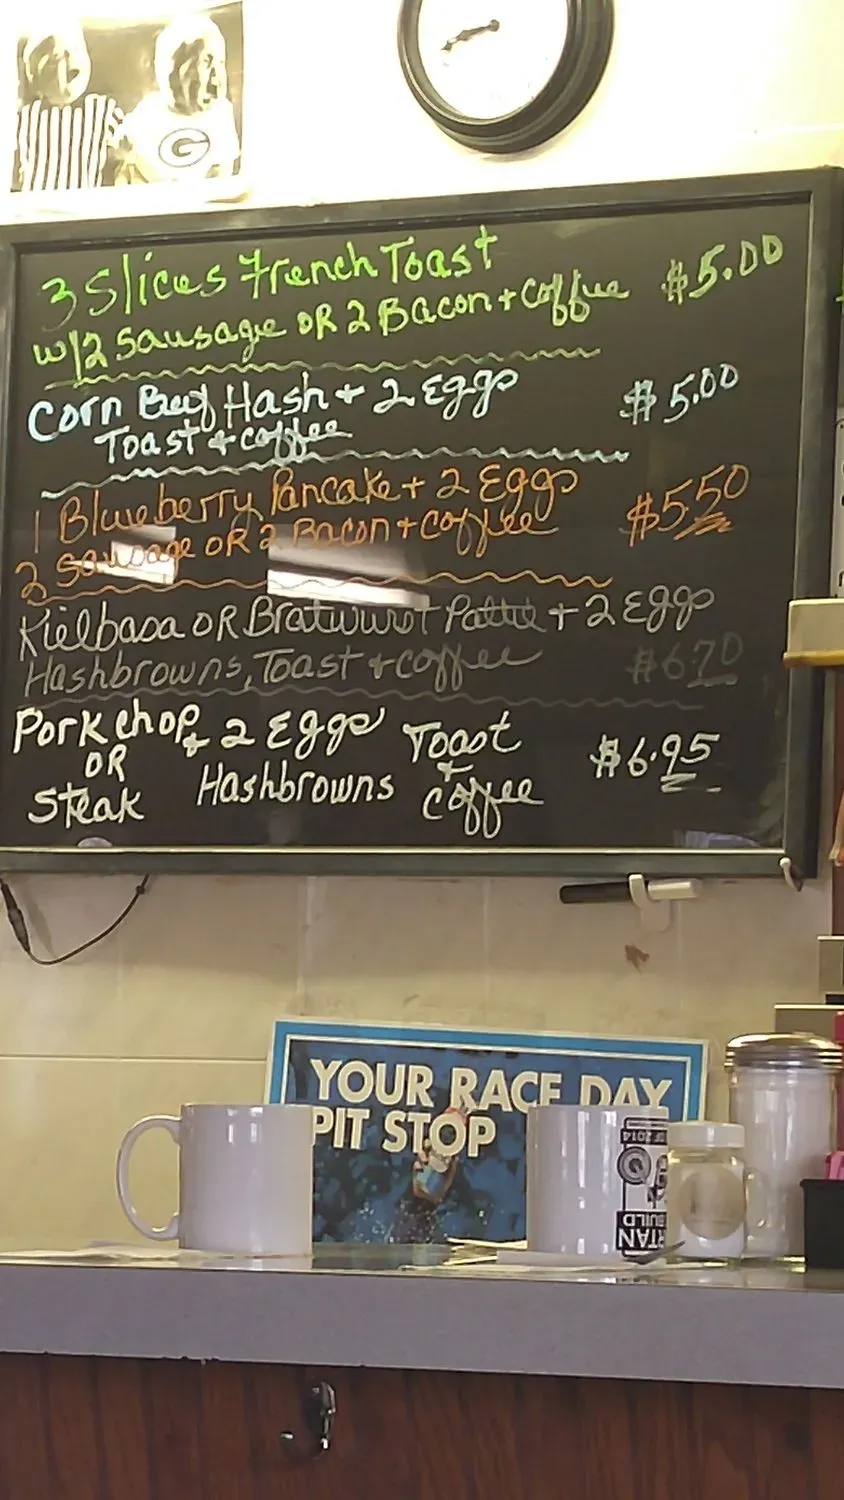 G
3 Slices French Toast
w/2 Sausage OR 2 Bacon + Coffee $5.00
Corn Beef Hash + 2 Eggs $5.00
Toast + Coffee
1 Blueberry Pancake + 2 Eggs $5.50
2 Sausage OR 2 Bacon + Coffee
Kielbasa OR Bratwurst Pattie + 2 Eggs
Hashbrowns, Toast + Coffee $6.70
Pork chop + 2 Eggs Toast $6.95
OR +
Steak Hashbrowns Coffee
YOUR RACE DAY
PIT STOP
2014
RTAN
BUILD